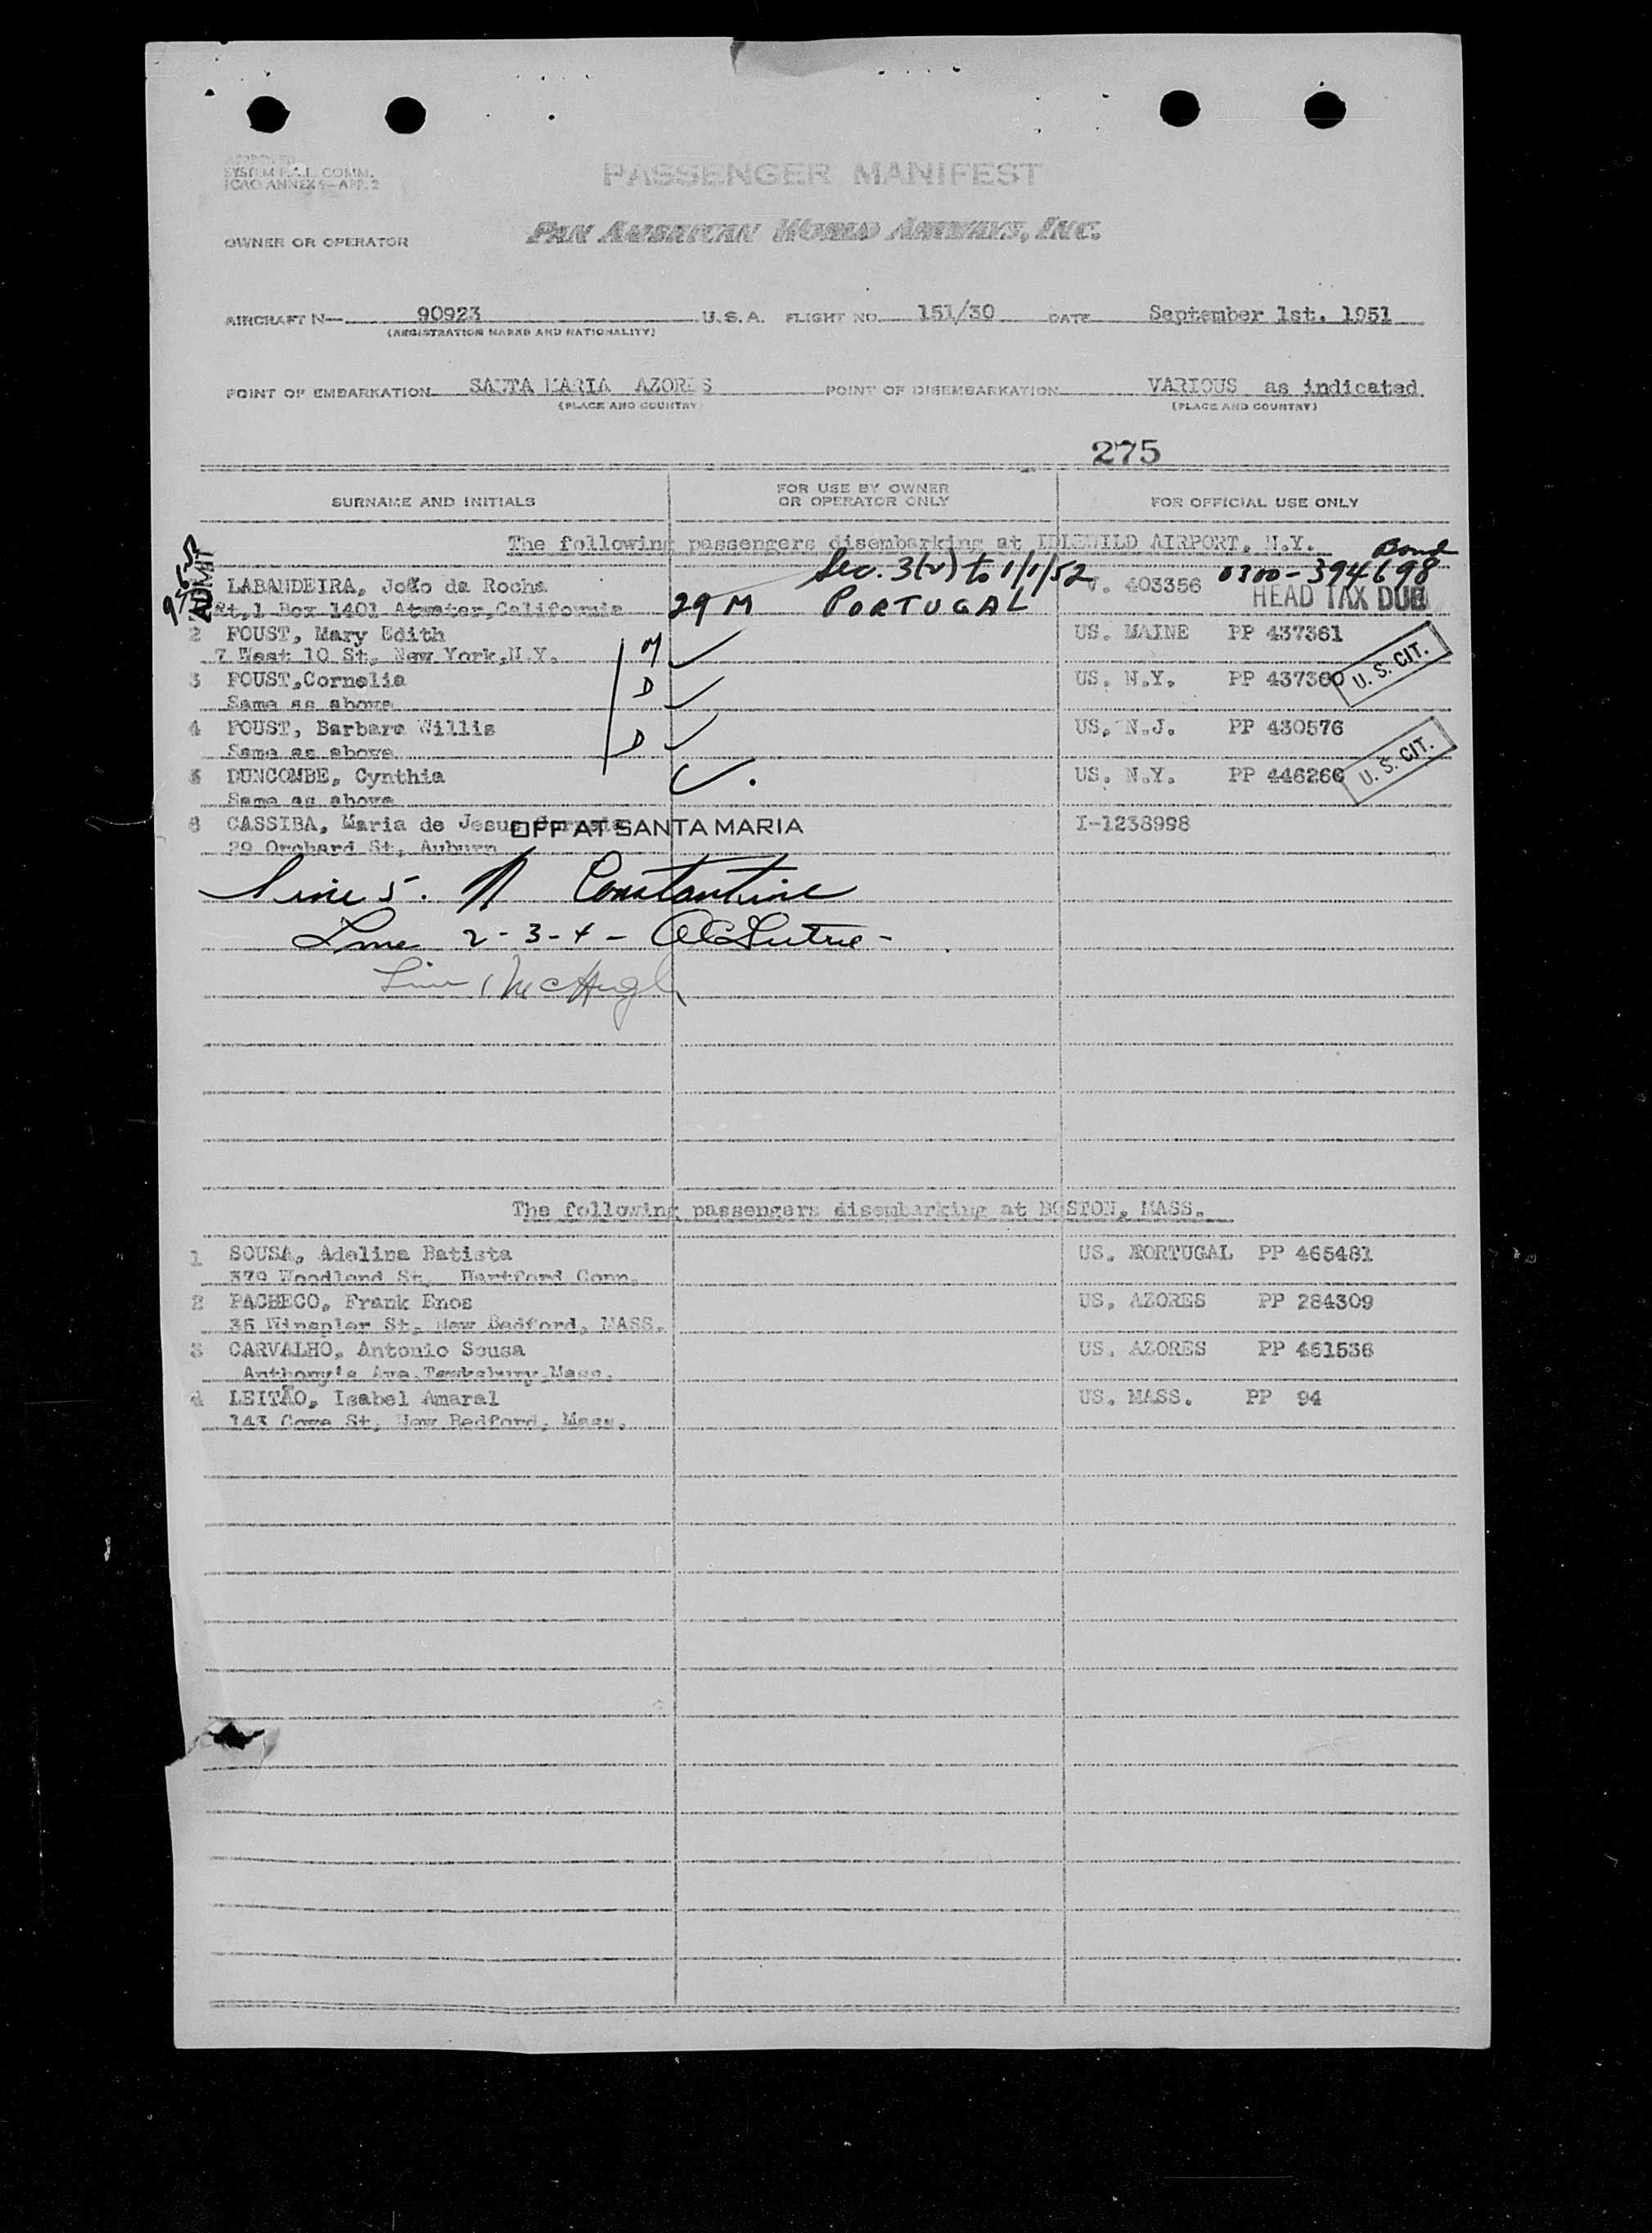 APPROVED
SYSTEM F.A.L. COMM.
ICAO ANNEX 9-APP. 2
PASSENGER MANIFEST
OWNER OR OPERATOR PAN AMERICAN WORLD AIRWAYS, INC.
AIRCRAFT N— 90923 U.S.A. FLIGHT NO. 151/30 DATE September 1st. 1951
(REGISTRATION MARKS AND NATIONALITY)
POINT OF EMBARKATION SANTA MARIA AZORES POINT OF DISEMBARKATION VARIOUS as indicated
(PLACE AND COUNTRY) (PLACE AND COUNTRY)
275
SURNAME AND INITIALS FOR USE BY OWNER OR OPERATOR ONLY FOR OFFICIAL USE ONLY
The following passengers disembarking at IDLEWILD AIRPORT, N.Y. Bond
ADMIT LABANDEIRA, João da Rocha Sec. 3(2) to 1/1/52 V. 403356 0300-394698
Rt,1 Box 1401 Atwater,California 29 M PORTUGAL HEAD TAX DUE
2 FOUST, Mary Edith M US. MAINE PP 437361
7 West 10 St, New York,N.Y.
3 FOUST,Cornelia D US. N.Y. PP 437360 U. S. CIT.
Same as above
4 FOUST, Barbara Willis D US. N.J. PP 430576
Same as above
5 DUNCOMBE, Cynthia US. N.Y. PP 446266 U. S. CIT.
Same as above
6 CASSIBA, Maria de Jesus OFF AT SANTA MARIA I-1238998
29 Orchard St, Auburn
Line 5. N Constantine
Line 2-3-4-
Line 1 McHugh
The following passengers disembarking at BOSTON, MASS.
1 SOUSA, Adelina Batista US. PORTUGAL PP 465481
379 Woodland St, Hartford Conn.
2 PACHECO, Frank Enos US. AZORES PP 284309
35 St, New Bedford, MASS.
3 CARVALHO, Antonio Sousa US. AZORES PP 451536
Anthony's Ave.Tewksbury,Mass.
4 LEITÃO, Isabel Amaral US. MASS. PP 94
143 Cove St, New Bedford, Mass.